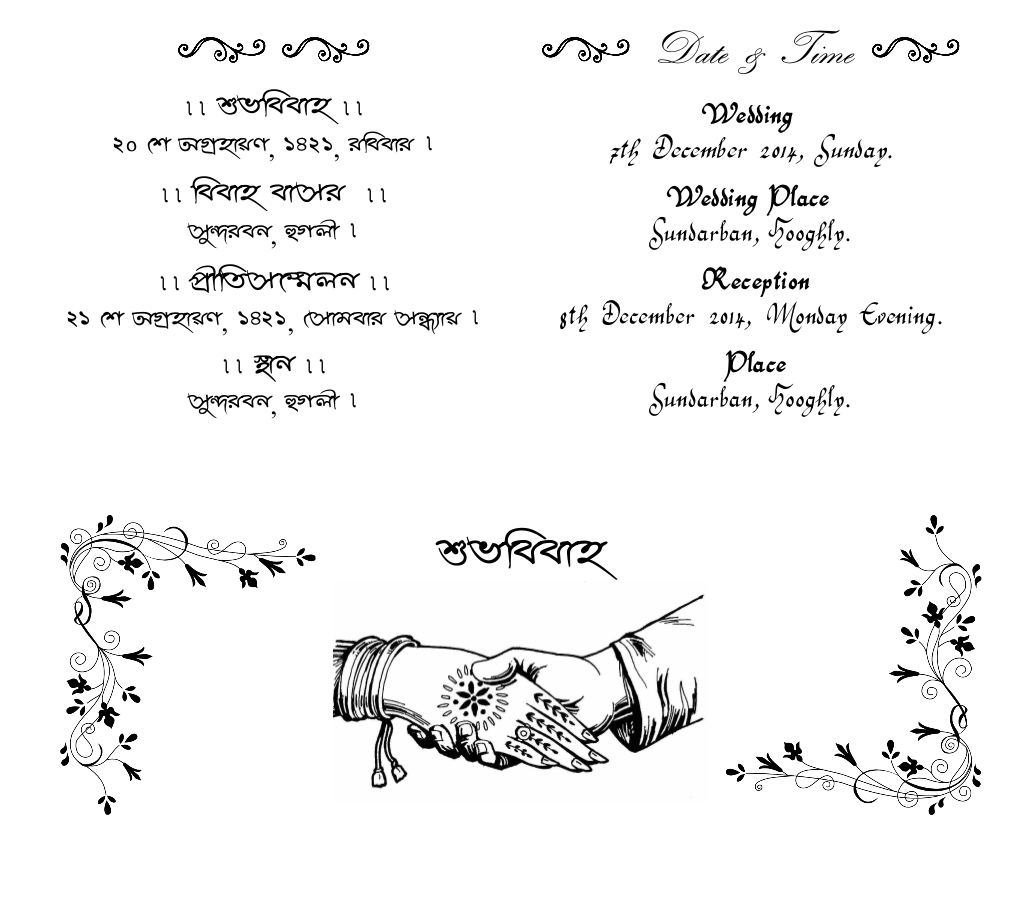 ।। শুভবিবাহ ।।
২০ শে অগ্রহায়ণ, ১৪২১, রবিবার ।
।। বিবাহ বাসর ।।
সুন্দরবন, হুগলী ।
।। প্রীতিসম্মেলন ।।
২১ শে অগ্রহায়ণ, ১৪২১, সোমবার সন্ধ্যায় ।
।। স্থান ।।
সুন্দরবন, হুগলী ।
Date & Time
Wedding
7th December 2014, Sunday.
Wedding Place
Sundarban, Hooghly.
Reception
8th December 2014, Monday Evening.
Place
Sundarban, Hooghly.
শুভবিবাহ